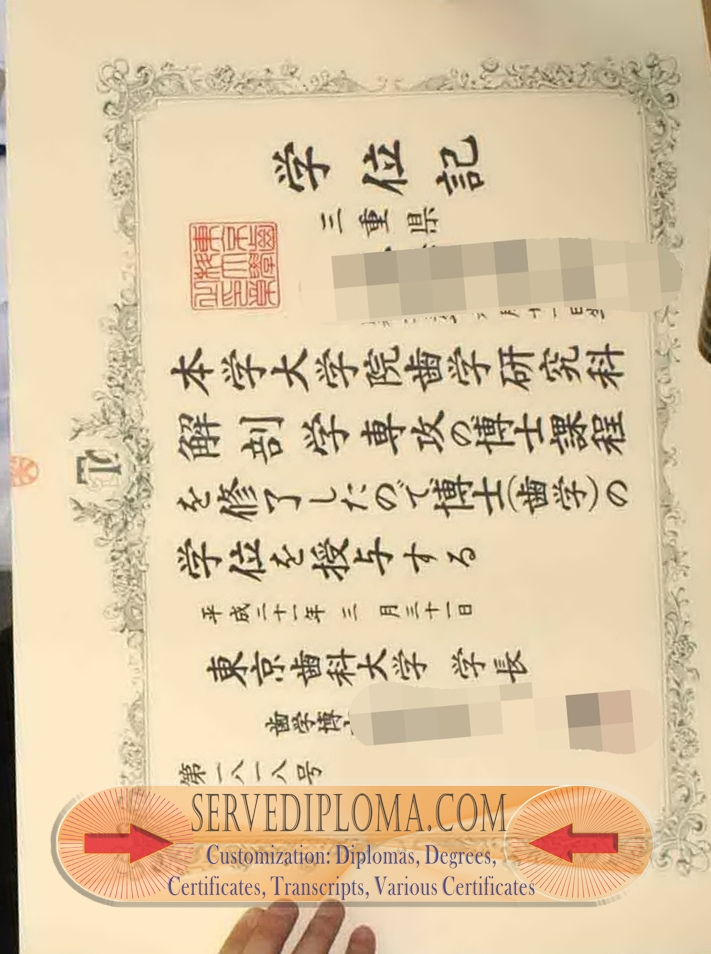 学位記
三重県
本学大学院歯学研究科
解剖学専攻の博士課程
を修了したので博士(歯学)の
学位を授与する
平成二十一年三月三十一日
東京歯科大学 学長
歯学博
第一八一八号
SERVEDIPLOMA.COM
Customization: Diplomas, Degrees,
Certificates, Transcripts, Various Certificates